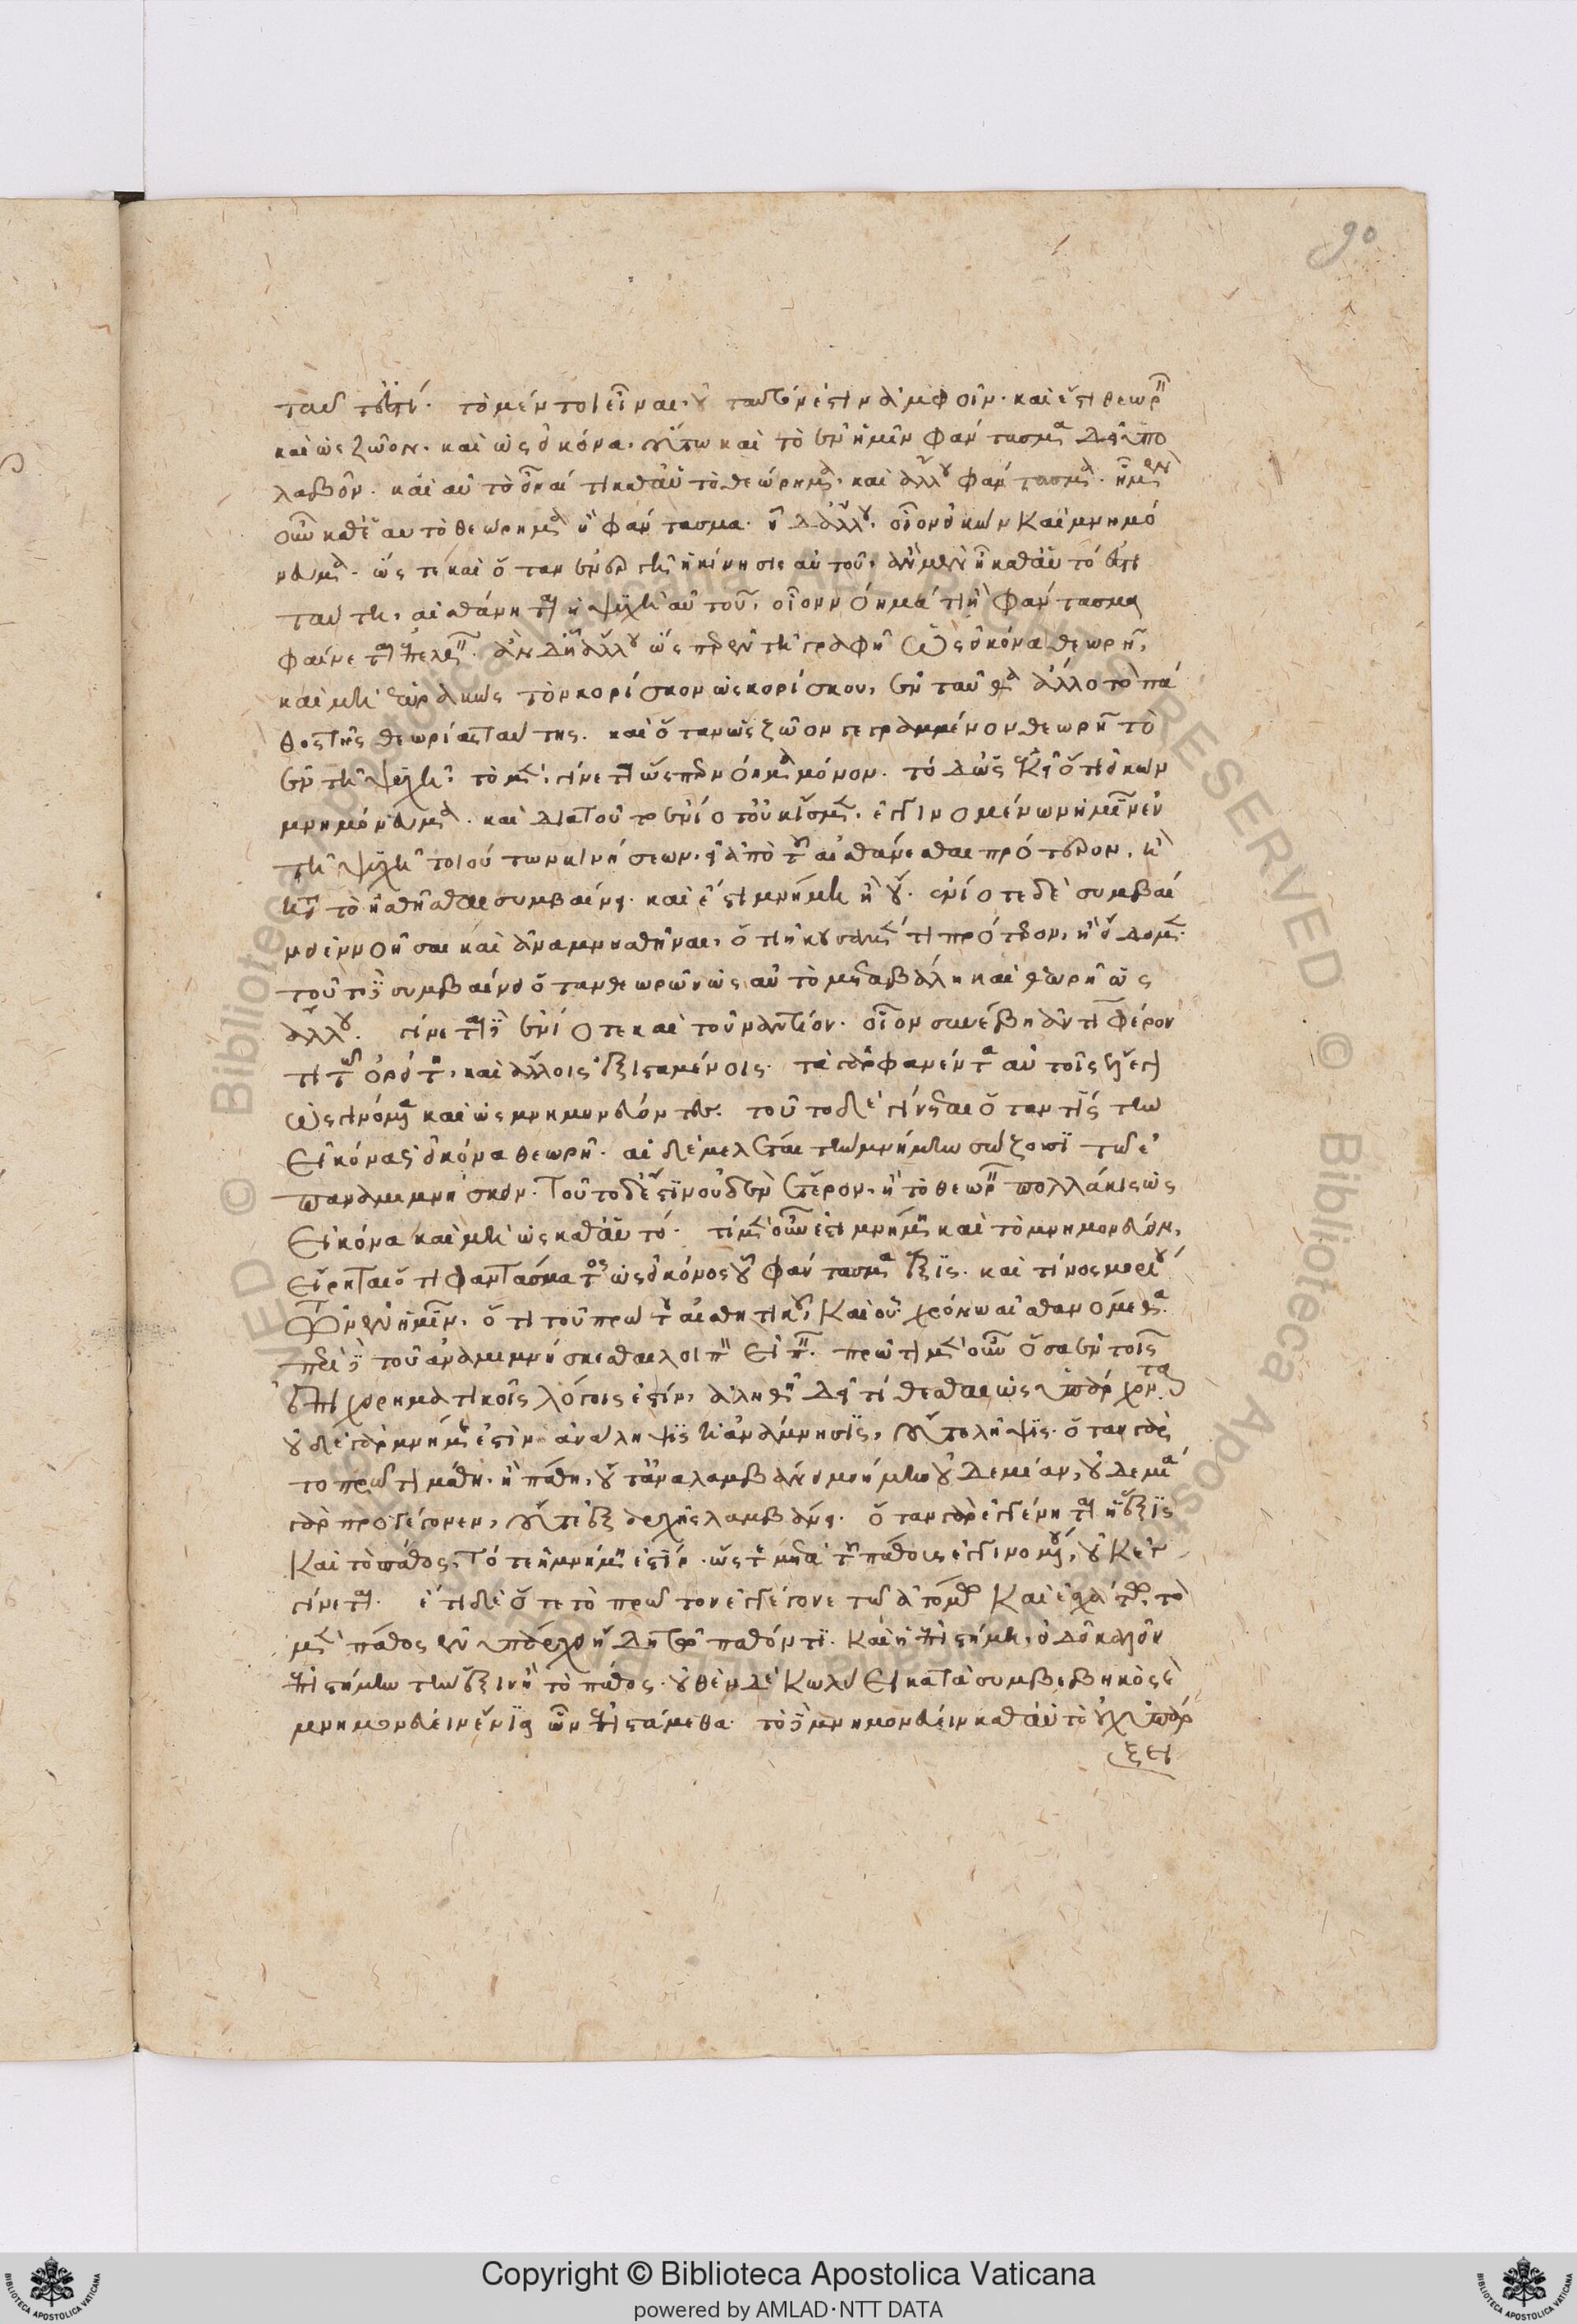 90
ταυτό ἐστί. τὸ μέντοι εἶναι, οὐ ταυτόν ἐστιν ἀμφοῖν. καὶ ἔστι θεωρεῖν
καὶ ὡς ζῶον. καὶ ὡς εἰκόνα. οὕτω καὶ τὸ ἐν ἡμῖν φάντασμα δεῖ ὑπο
λαβεῖν. καὶ αὐτὸ εἶναί τι καθ' αὑτὸ θεώρημα. καὶ ἄλλου φάντασμα. ἧ μὲν
οὖν καθ' ἑαυτὸ θεώρημα ἢ φάντασμα. ἧ δ' ἄλλου. οἷον εἰκὼν καὶ μνημό
νευμα. ὥστε καὶ ὅταν ἐνεργῇ ἡ κίνησις αὐτοῦ, ἂν μὲν ἧ καθ' αὑτό ἐστι
ταύτῃ, αἰσθάνηται ἡ ψυχὴ αὐτοῦ, οἷον νόημά τι ἢ φάντασμα
φαίνεται ἐπελθεῖν. ἂν δ' ἧ ἄλλου ὥσπερ ἐν τῇ γραφῇ ὡς εἰκόνα θεωρεῖ,
καὶ μὴ ἑωρακὼς τὸν κορίσκον ὡς κορίσκου, ἐνταῦθα ἄλλο τὸ πά
θος τῆς θεωρίας ταύτης. καὶ ὅταν ὡς ζῶον γεγραμμένον θεωρῇ τὸ
ἐν τῇ ψυχῇ. τὸ μὲν, γίνεται ὥσπερ νόημα μόνον. τὸ δ' ὡς ἐκεῖ ὅτι εἰκὼν
μνημόνευμα. καὶ διὰ τοῦτο ἐνίοτε οὐκ ἴσμεν, ἐγγινομένων ἡμῖν ἐν
τῇ ψυχῇ τοιούτων κινήσεων, ἀπὸ τοῦ αἰσθάνεσθαι πρότερον, εἰ
κατὰ τὸ ᾐσθῆσθαι συμβαίνει. καὶ εἰ ἔστι μνήμη ἢ οὔ. ἐνίοτε δὲ συμβαί
νει ἐννοῆσαι καὶ ἀναμνησθῆναι, ὅτι ἠκούσαμέν τι πρότερον, ἢ εἴδομεν.
τοῦτο δὲ συμβαίνει ὅταν θεωρῶν ὡς αὐτὸ μεταβάλῃ καὶ θεωρῇ ὡς
ἄλλου. γίνεται δὲ ἐνίοτε καὶ τοὐναντίον. οἷον συνέβη ἀντιφέρον
τι τῷ ὀρείτῃ, καὶ ἄλλοις ἐξισταμένοις. τὰ γὰρ φανέντα αὐτοῖς ἔλεγον
ὡς γινόμενα καὶ ὡς μνημονεύοντες. τοῦτο δὲ γίνεται ὅταν τίς τὴν μὴ
εἰκόνα ὡς εἰκόνα θεωρῇ. αἱ δὲ μελέται τὴν μνήμην σώζουσι τῷ ἐ
παναμιμνήσκειν. τοῦτο δ' ἔστιν οὐδὲν ἕτερον, ἢ τὸ θεωρεῖν πολλάκις ὡς
εἰκόνα καὶ μὴ ὡς καθ' αὑτό. τί μὲν οὖν ἐστι μνήμη καὶ τὸ μνημονεύειν,
εἴρηται ὅτι φαντάσματος ὡς εἰκόνος οὗ φάντασμα ἕξις. καὶ τίνος μορίου
τῶν ἐν ἡμῖν. ὅτι τοῦ πρώτου αἰσθητικοῦ, καὶ οὗ χρόνου αἰσθανόμεθα.
περὶ δὲ τοῦ ἀναμιμνήσκεσθαι λοιπὸν εἰπεῖν. πρῶτον μὲν οὖν ὅσα ἐν τοῖς
ἐπιχειρηματικοῖς λόγοις ἐστίν, ἀληθῆ δεῖ τίθεσθαι ὡς ὑπάρχοντα
οὐδὲ γὰρ μνήμης ἐστὶν ἀνάληψις ἡ ἀνάμνησις, οὔτε λῆψις. ὅταν γὰρ
τὸ πρῶτον μάθῃ. ἢ πάθῃ, οὔτ' ἀναλαμβάνει μνήμην οὐδεμίαν, οὐδεμία
γὰρ προγέγονεν, οὔτε ἐξ ἀρχῆς λαμβάνει. ὅταν γὰρ ἐγγένηται ἡ ἕξις
καὶ τὸ πάθος, τότε ἡ μνήμη ἐστίν. ὥστε μετὰ τοῦ πάθους ἐγγινομένου, οὐκ ἐγ
γίνεται. ἔτι δὲ ὅτε τὸ πρῶτον ἐγγέγονε τῷ ἀτόμῳ καὶ ἐσχάτῳ, τὸ
μὲν πάθος ἐνυπάρχει ἤδη τῷ παθόντι. καὶ ἡ ἐπιστήμη, εἰ δεῖ καλεῖν
ἐπιστήμην τὴν ἕξιν ἢ τὸ πάθος. οὐθὲν δὲ κωλύει κατὰ συμβεβηκὸς
μνημονεύειν ἔνια ὧν ἐπιστάμεθα. τὸ δὲ μνημονεύειν καθ' αὑτὸ οὐχ ὑπάρ
ξει
Copyright © Biblioteca Apostolica Vaticana
powered by AMLAD·NTT DATA